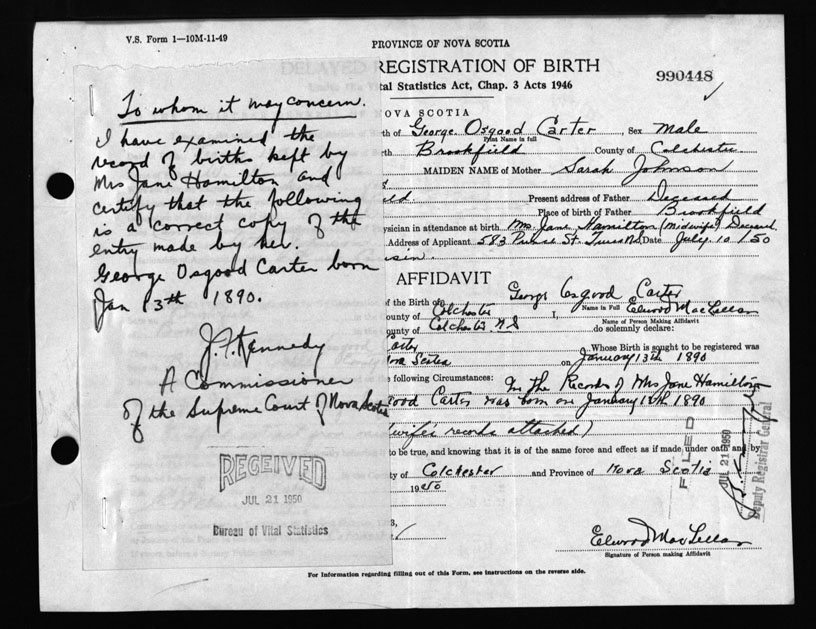 V.S. Form 1—10M-11-49
PROVINCE OF NOVA SCOTIA
REGISTRATION OF BIRTH
990448
tal Statistics Act, Chap. 3 Acts 1946
To whom it may concern.
I have examined the
record of births kept by
Mrs Jane Hamilton and
certify that the following
is a correct copy of the
entry made by her.
George Osgood Carter born
Jan 13th 1890.
J. F. Kennedy
A Commissioner
of the Supreme Court of Nova Scotia
RECEIVED
JUL 21 1950
Bureau of Vital Statistics
NOVA SCOTIA
th of George Osgood Carter, Sex Male
Print Name in full
rth Brookfield County of Colchester
MAIDEN NAME of Mother Sarah Johnson
Present address of Father Deceased
Place of birth of Father Brookfield
ysician in attendance at birth Mrs. Jane Hamilton (Midwife) Deceased
Address of Applicant 583 St. Truro NS Date July 10 1950
AFFIDAVIT
of the Birth of George Osgood Carter
Name in Full
ounty of Colchester I, Elwood MacLellan
Name in Person Making Affidavit
ounty of Colchester N.S do solemnly declare:
Carter Whose Birth is sought to be registered was
ova Scotia on January 13th 1890
e following Circumstances: In the Records of Mrs Jane Hamilton
good Carter was born on January 13th 1890
wife's records attached)
to be true, and knowing that it is of the same force and effect as if made under oath and by
ty of Colchester and Province of Nova Scotia
1950
FILED
JUL 21 1950
Deputy Registrar General
Elwood MacLellan
Signature of Person making Affidavit
For Information regarding filling out of this Form, see instructions on the reverse side.